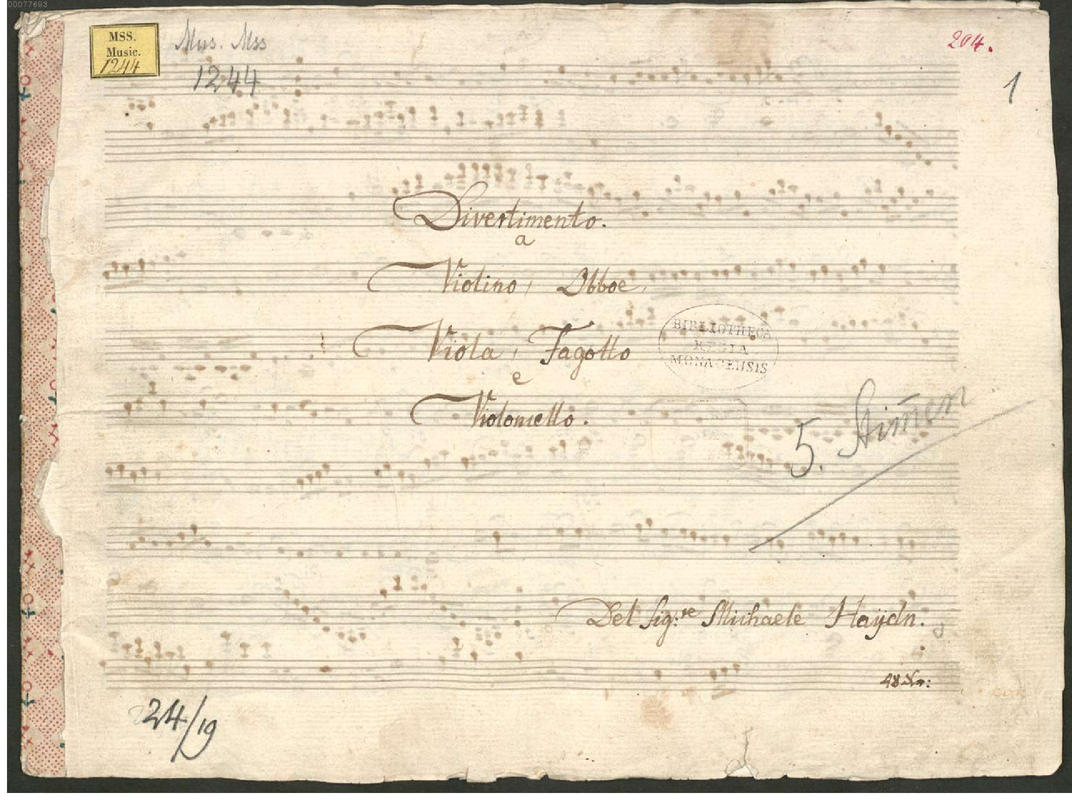 00077693
MSS.
Music.
1244
Mus. Mss
1244
204.
1
Divertimento.
a
Violino, Obboe,
Viola, Fagotto
e
Violoncello.
BIBLIOTHECA
REGIA
MONACENSIS
5. Stim̄en
Del Sig:re Michaele Haÿdn.
24/19